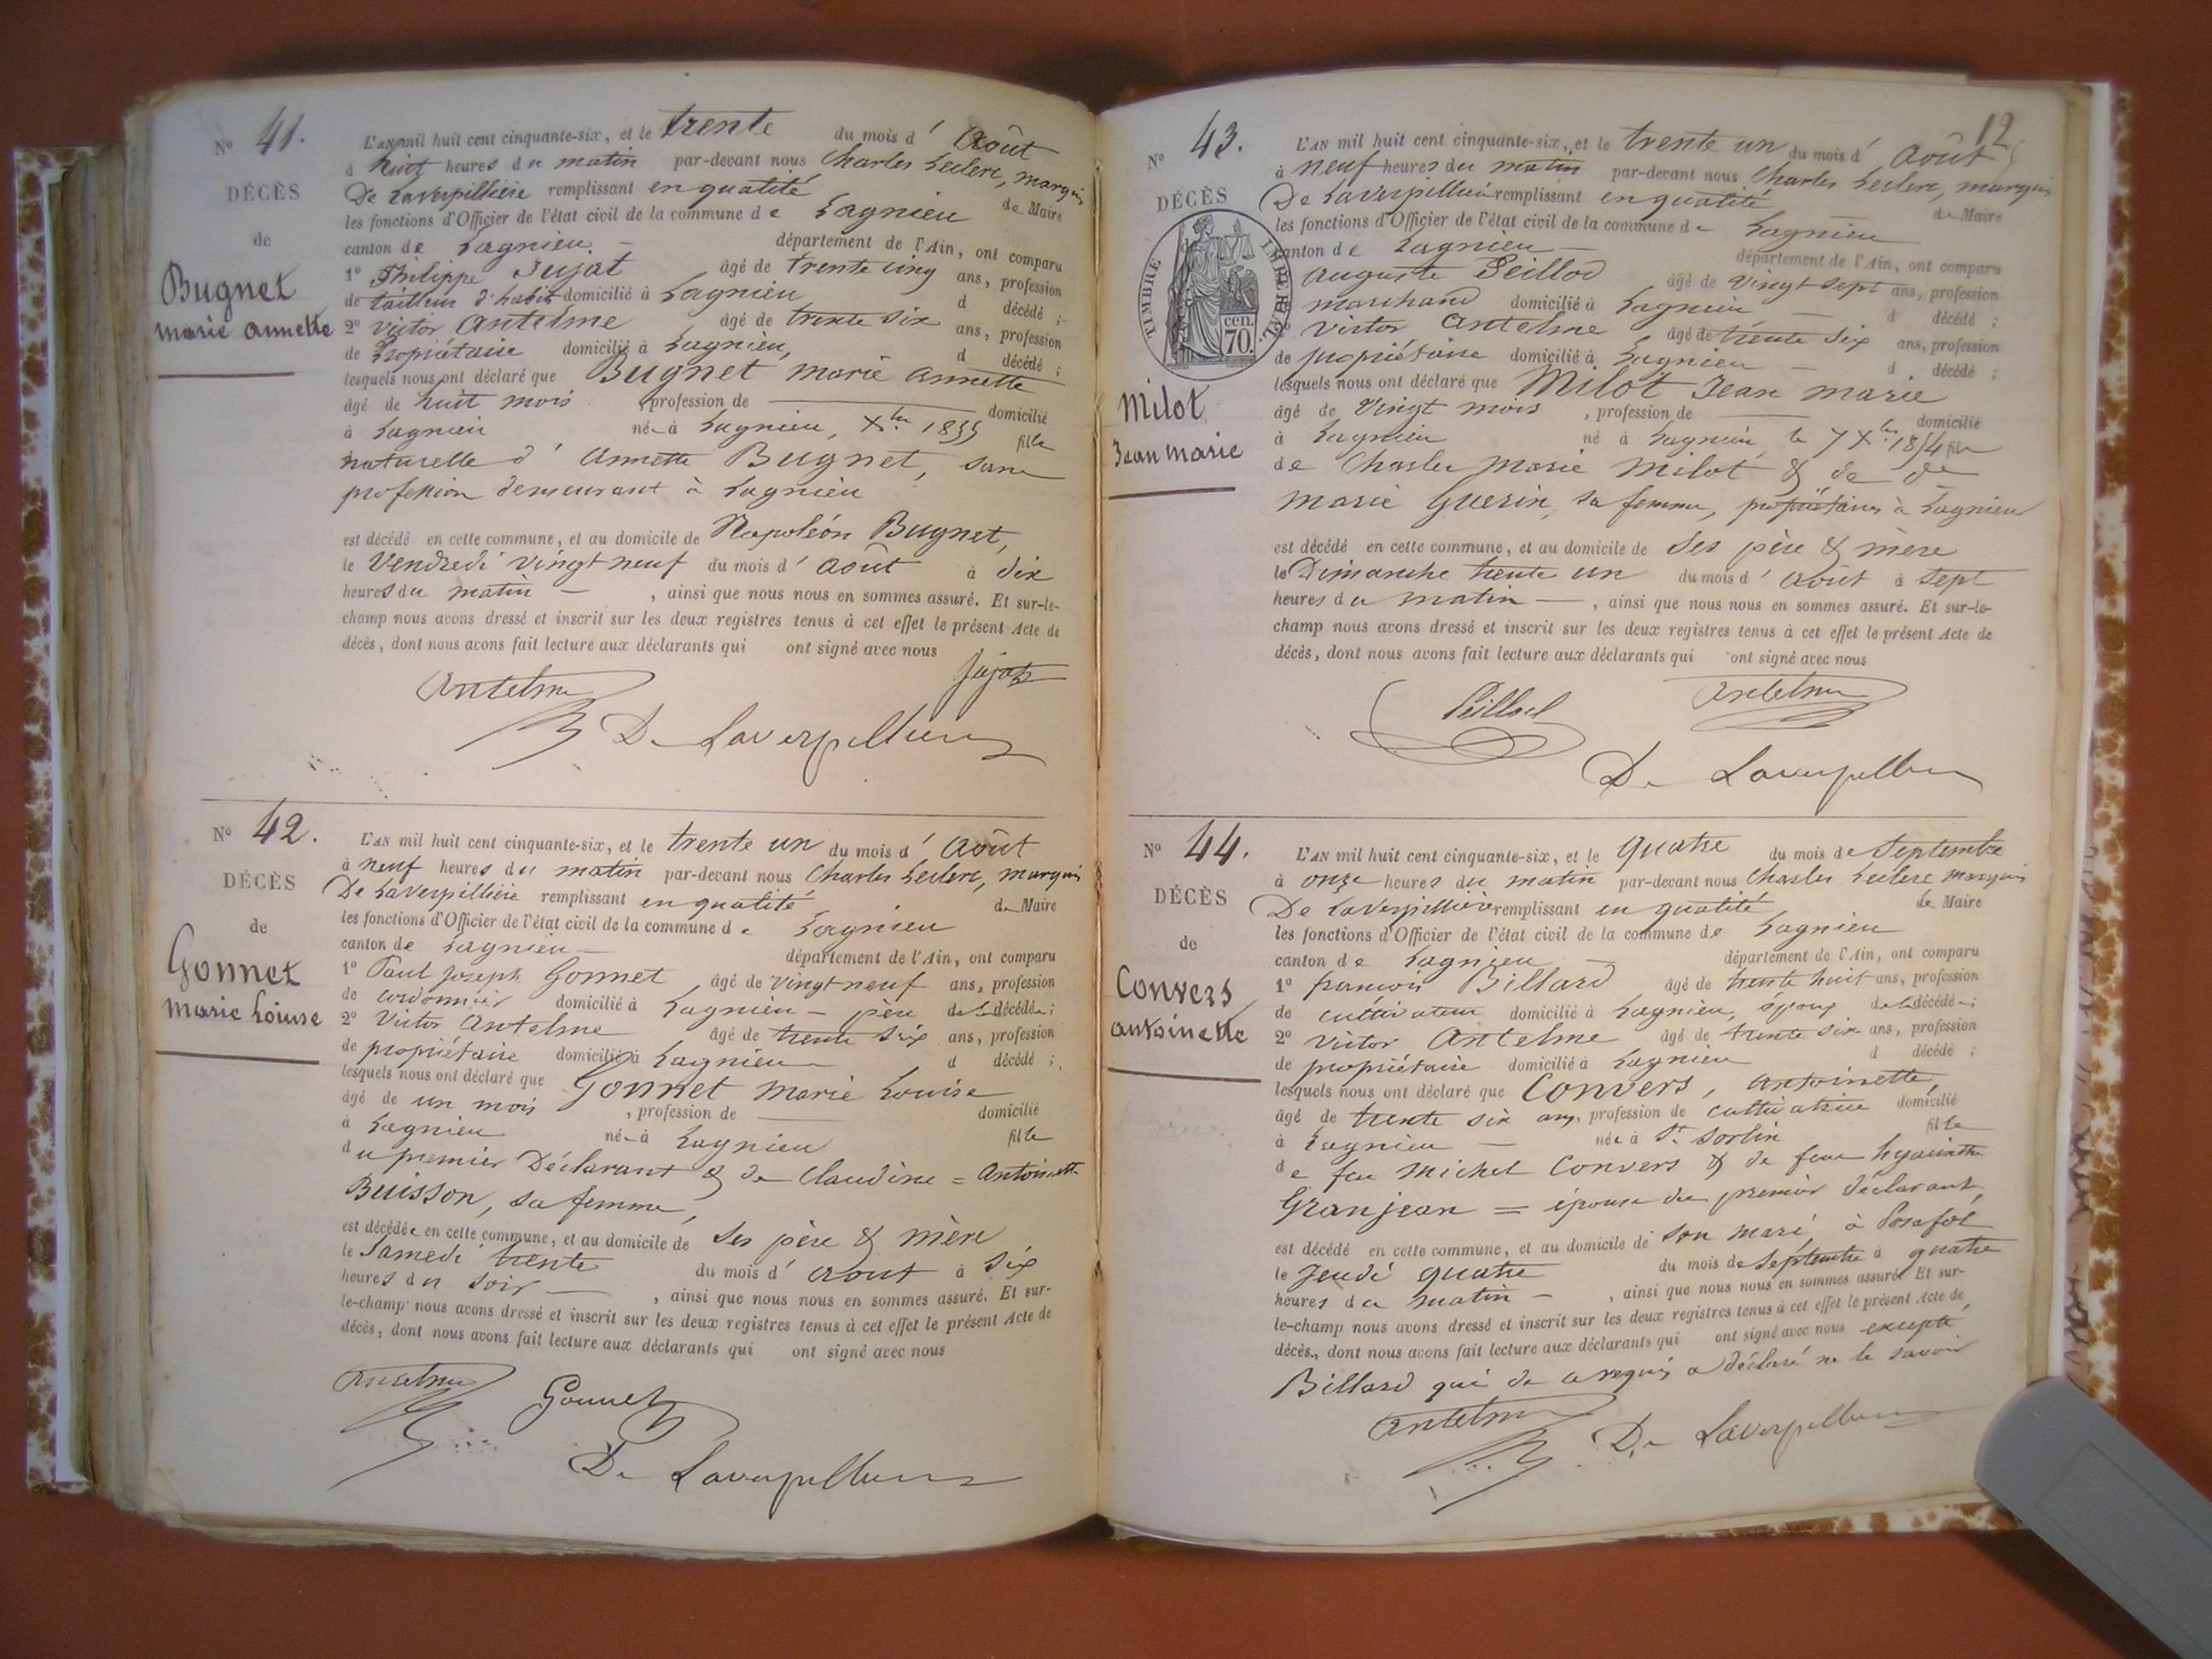 N° 41.
DÉCÈS
de
Bugnet
marie annette
L'AN mil huit cent cinquante-six, et le trente du mois d' Août
à huit heures du matin par-devant nous Charles Leclerc, marquis
De Laverpillière remplissant en qualité de Maire
les fonctions d'Officier de l'état civil de la commune de Lagnieu
canton de Lagnieu – département de l'Ain, ont comparu
1° Philippe Jujat âgé de trente cinq ans, profession
de tailleur d'habit domicilié à Lagnieu d décédé ;
2° Victor Antelme âgé de trente six ans, profession
de Propriétaire domicilié à Lagnieu, d décédé ;
lesquels nous ont déclaré que Bugnet marie annette
âgé de huit mois , profession de — domicilié
à Lagnieu née à Lagnieu, Xbre 1855 fille
naturelle d' Annette Bugnet, sans
profession demeurant à Lagnieu
est décédé en cette commune, et au domicile de Napoléon Bugnet,
le Vendredi vingt neuf du mois d' Août à dix
heures du matin – , ainsi que nous nous en sommes assuré. Et sur-le-
champ nous avons dressé et inscrit sur les deux registres tenus à cet effet le présent Acte de
décès, dont nous avons fait lecture aux déclarants qui ont signé avec nous
Jujat
Antelme
De Laverpilliere
N° 42.
DÉCÈS
de
Gonnet
Marie Louise
L'AN mil huit cent cinquante-six, et le trente un du mois d' Août
à neuf heures du matin par-devant nous Charles Leclerc, marquis
De Laverpillière remplissant en qualité de Maire
les fonctions d'Officier de l'état civil de la commune de Lagnieu
canton de Lagnieu – département de l'Ain, ont comparu
1° Paul Joseph Gonnet âgé de vingt neuf ans, profession
de cordonnier domicilié à Lagnieu – père de la décédée ;
2° Victor Antelme âgé de trente six ans, profession
de propriétaire domicilié à Lagnieu d décédé ;
lesquels nous ont déclaré que Gonnet Marie Louise
âgé de un mois , profession de — domicilié
à Lagnieu née à Lagnieu fille
du premier Déclarant & de Claudine = Antoinette
Buisson, sa femme,
est décédée en cette commune, et au domicile de Ses père & mère
le Samedi trente du mois d' aout à six
heures du soir – , ainsi que nous nous en sommes assuré. Et sur-
le-champ nous avons dressé et inscrit sur les deux registres tenus à cet effet le présent Acte de
décès, dont nous avons fait lecture aux déclarants qui ont signé avec nous
Antelme
Gonnet
De Laverpilliere
12
N° 43.
DÉCÈS
TIMBRE IMPÉRIAL
70 cen.
Milot
Jean Marie
L'AN mil huit cent cinquante-six, et le trente un du mois d' Août
à neuf heures du matin par-devant nous Charles Leclerc, marquis
De Laverpillière remplissant en qualité de Maire
les fonctions d'Officier de l'état civil de la commune de Lagnieu
canton de Lagnieu – département de l'Ain, ont comparu
Auguste Peillod âgé de vingt sept ans, profession
marchand domicilié à Lagnieu – d décédé ;
Victor Antelme âgé de trente six ans, profession
de propriétaire domicilié à Lagnieu – d décédé ;
lesquels nous ont déclaré que Milot Jean marie
âgé de Vingt mois , profession de — domicilié
à Lagnieu né à Lagnieu, le 7 Xbre 1854 fils
de Charles Marie Milot & de de
Marie Guerin, sa femme, propriétaires à Lagnieu
est décédé en cette commune, et au domicile de Ses père & mère
le Dimanche trente un du mois d' Août à sept
heures du matin — , ainsi que nous nous en sommes assuré. Et sur-le-
champ nous avons dressé et inscrit sur les deux registres tenus à cet effet le présent Acte de
décès, dont nous avons fait lecture aux déclarants qui ont signé avec nous
Peillod
Antelme
De Laverpilliere
N° 44.
DÉCÈS
de
Convers
antoinette
L'AN mil huit cent cinquante-six, et le quatre du mois de Septembre
à onze heures du matin par-devant nous Charles Leclerc marquis
De Laverpillière remplissant en qualité de Maire
les fonctions d'Officier de l'état civil de la commune de Lagnieu
canton de Lagnieu – département de l'Ain, ont comparu
1° françois Billard âgé de trente huit ans, profession
de cultivateur domicilié à Lagnieu, époux de la décédée ;
2° Victor Antelme âgé de trente six ans, profession
de propriétaire domicilié à Lagnieu d décédé ;
lesquels nous ont déclaré que Convers, Antoinette,
âgé de trente six ans, profession de cultivatrice domicilié
à Lagnieu – née à St. Sorlin fille
de feu Michel Convers & de feue hyacinthe
Granjean = épouse du premier déclarant,
est décédé en cette commune, et au domicile de son mari, à Posafol
le Jeudi quatre du mois de Septembre à quatre
heures du matin – , ainsi que nous nous en sommes assuré. Et sur-
le-champ nous avons dressé et inscrit sur les deux registres tenus à cet effet le présent Acte de
décès, dont nous avons fait lecture aux déclarants qui ont signé avec nous excepté
Billard qui de ce requis a déclaré ne le savoir
Antelme
De Laverpilliere